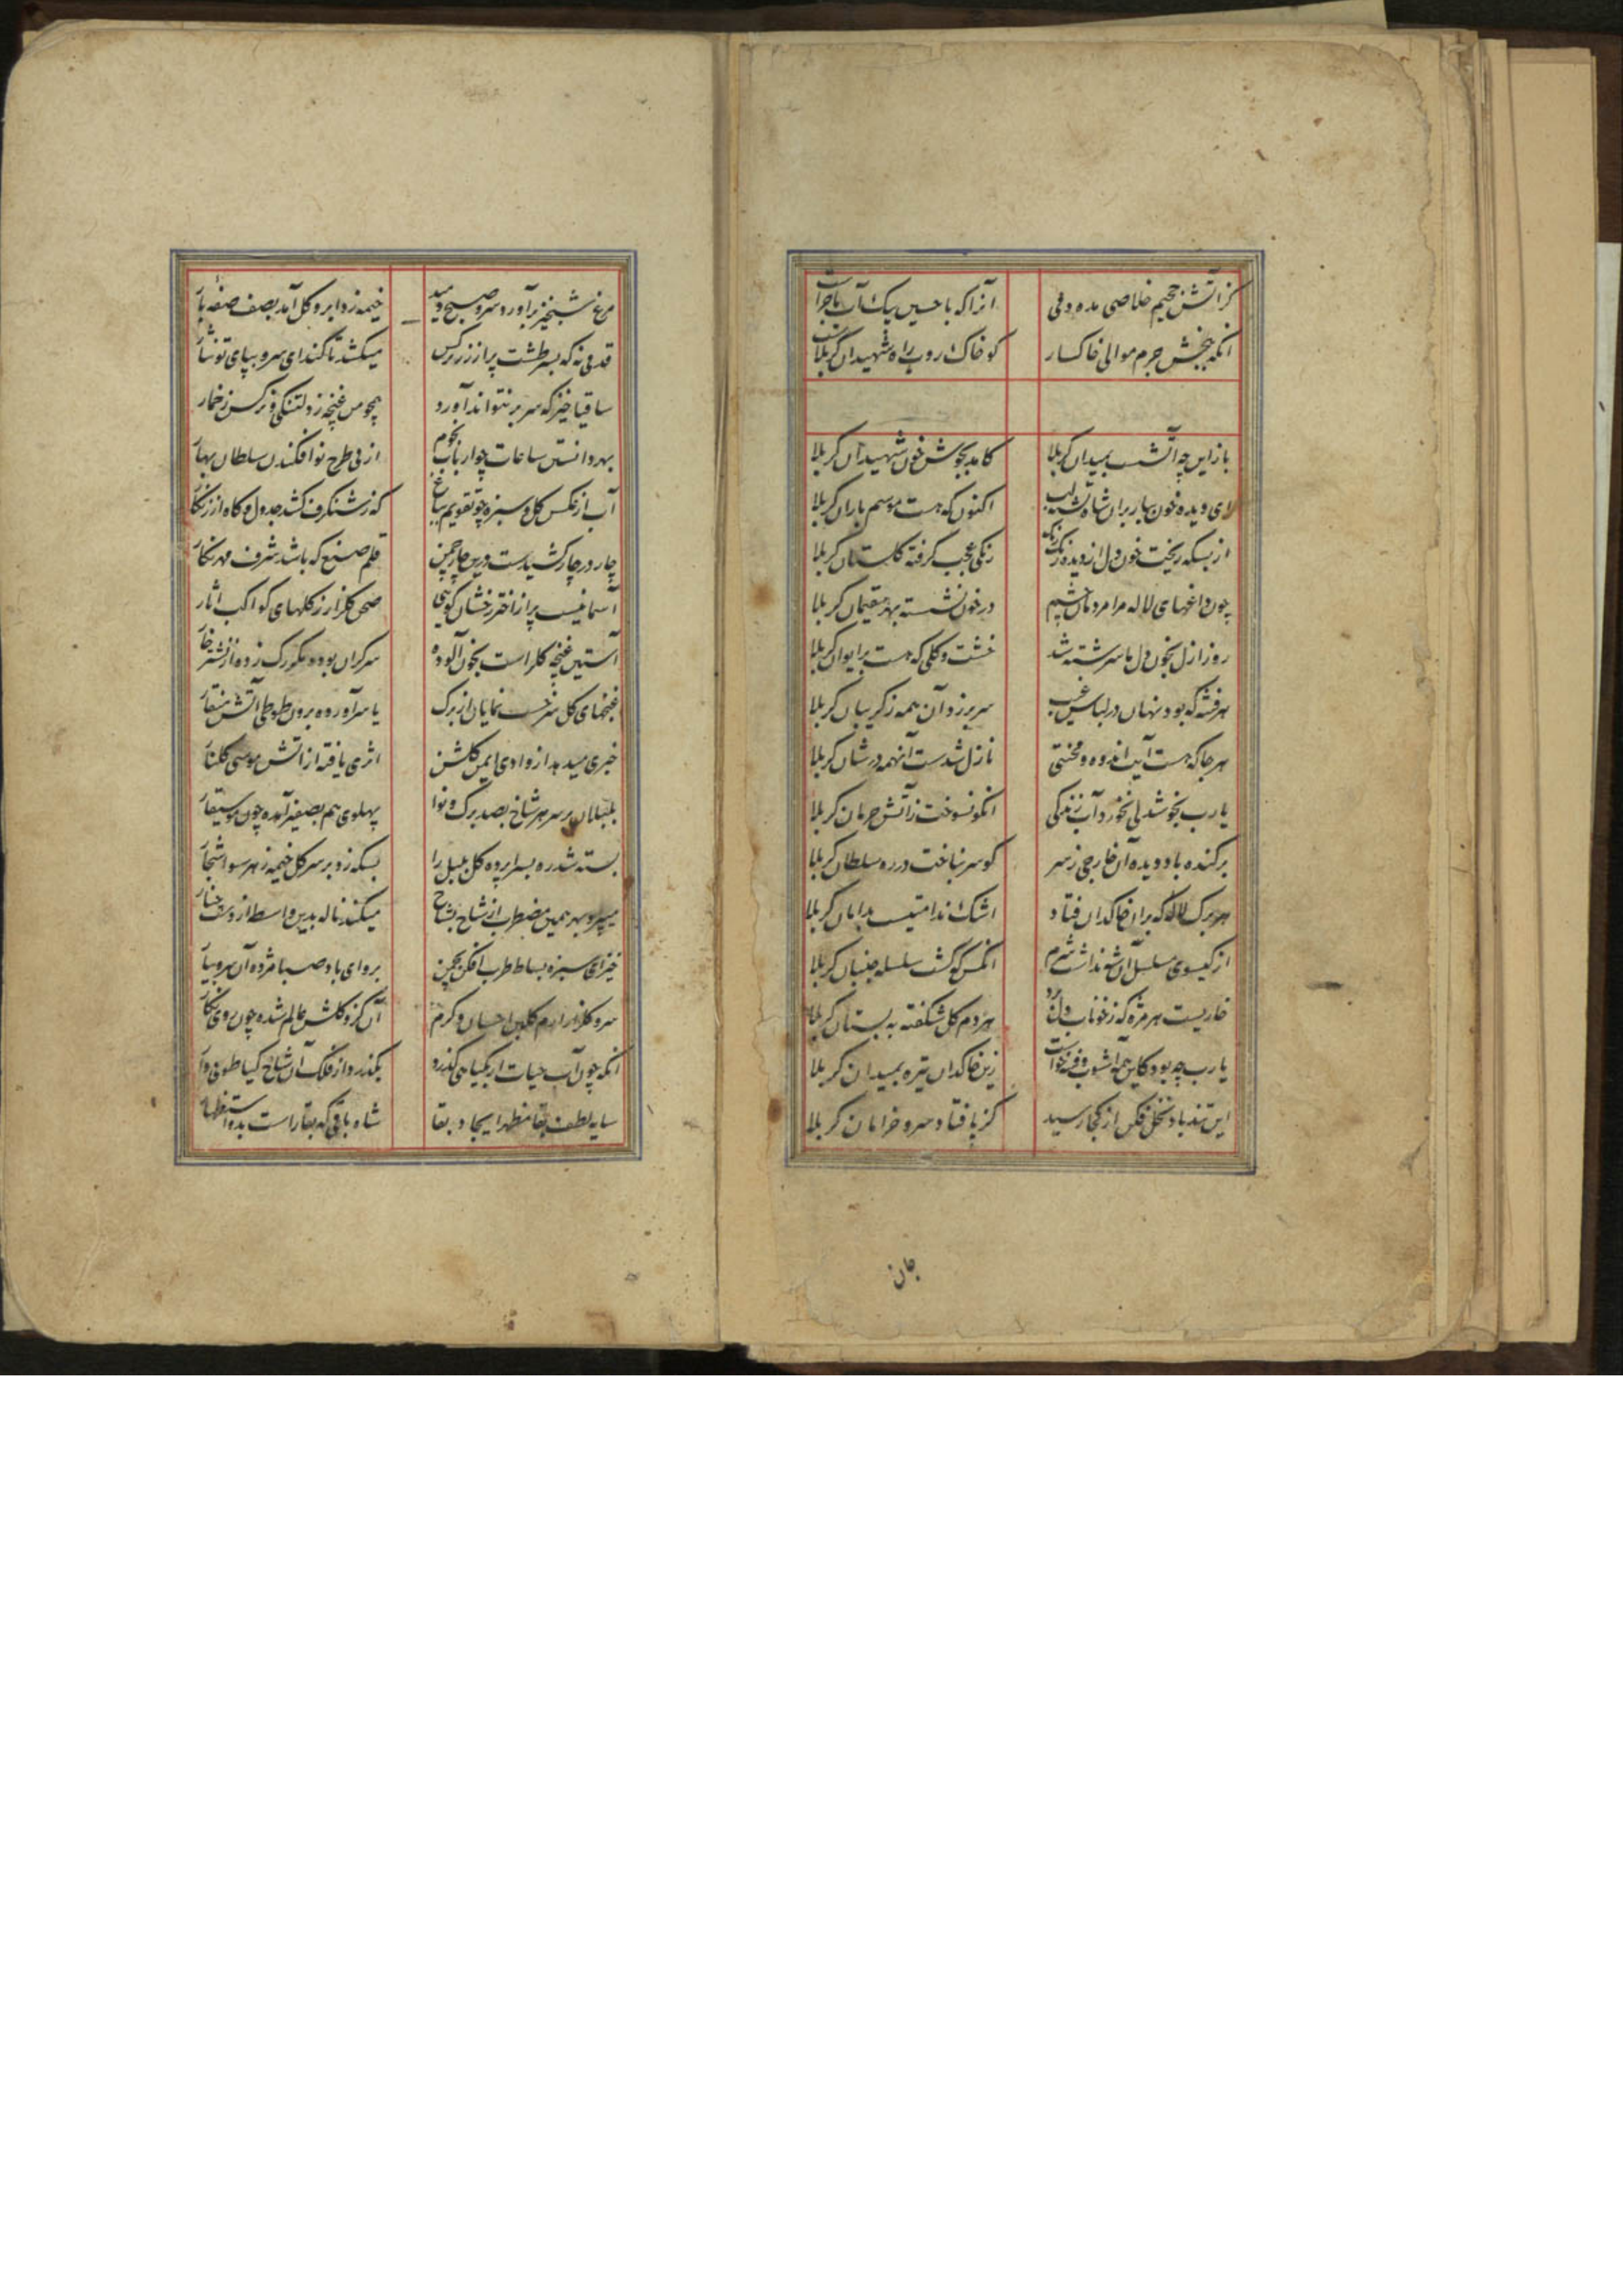 کز آتش جحیم خلاصی مده دمی آنرا که با حسین یک آب ماجراست
آنگه ببخش جرم موالی خاکسار کو خاک روب راه شهیدان کربلاست
باز این چه آتشست بمیدان کربلا کامد بجوش خون شهیدان کربلا
ای دیده خون ببار بران شاه تشنه لب اکنون که هست موسم باران کربلا
از بسکه ریخت خون دل از دیده رنک رنک رنکی عجب گرفته گلستان کربلا
چون داغهای لاله مرا مردمان چشم در خون نشسته بهر مقیمان کربلا
روز ازل بخون دل ما سرشته شد خشت و گلی که هست بر ایوان کربلا
هر فتنه که بود نهان در لباس غیب سر بر زد آن همه ز گریبان کربلا
هر جا که هست آیت اندوه و محنتی نازل شدست آنهمه در شان کربلا
یا رب بخوشدلی نخورد آب زندگی آنکو نسوخت ز آتش حرمان کربلا
برکنده باد دیده آن خارجی ز سر کو سر نباخت در ره سلطان کربلا
هر برک لاله که بران خاکدان فتاد اشک ندامتیست بدامان کربلا
از گیسوی مسلسل آن شه نداشت شرم آنکس که گشت سلسله جنبان کربلا
خاریست هر مژه که ز خوناب دل هر دم گل شکفته به بستان کربلا
یا رب چه بود کاین همه آشوب و فتنه خواست زین خاکدان تیره بمیدان کربلا
این تند باد نخل فکن از کجا رسید کز پا فتاد سرو خرامان کربلا
جان
مرغ شبخیز برآورد سر و صبح دمید خیمه زد ابر و گل آمد بصف صفه بار
قدمی نه که بسر طشت پر از زر نرکس میکشد تا کند ای سرو بپای تو نثار
ساقیا خیز که سر بر نتواند آورد همچو من غنچه ز دلتنکی و نرکس ز خمار
بهر دانستن ساعات چو ارباب نجوم از پی طرح نو افکندن سلطان بهار
آب از عکس گل و سبزه چو تقویم بباغ که ز شنگرف کشد جدول و گاه از زنگار
چار در چار کشیدست درین چار چمن قلم صنع که باشد شرف مهر نکار
آسمانیست پر از اختر رخشان گویی صحن گلزار ز گلهای کواکب آثار
آستین غنچه گلراست بخون آلوده
غنچهای گل سرخست نمایان از برک یا سر آورده برون طوطی آتش منقار
خبری میدهد از وادی ایمن گلشن اثری یافته از آتش موسی گلنار
بلبلان بر سر هر شاخ بصد برک و نوا پهلوی هم بصفیر آمده چون موسیقار
بسته شد ره بسراپرده گل بلبل را بسکه زد بر سر گل خیمه ز هر سو اشجار
میپرد بهر همین مضطرب از شاخ بشاخ میکند ناله بدین واسطه از دست چنار
خیز ای سبزه بساط طرب افکن بچمن برو ای باد صبا مژده آن سرو بیار
سرو گلزار ارم گلبن احسان و کرم آن کزو گلشن عالم شده چون روی نگار
آنکه چون آب حیات ار بگیاهی گذرد بگذرد از فلک آن شاخ گیا طوبی وار
سایه لطف بقا مظهر ایجاد بقا شاه باقی که بقا راست بدو استظهار